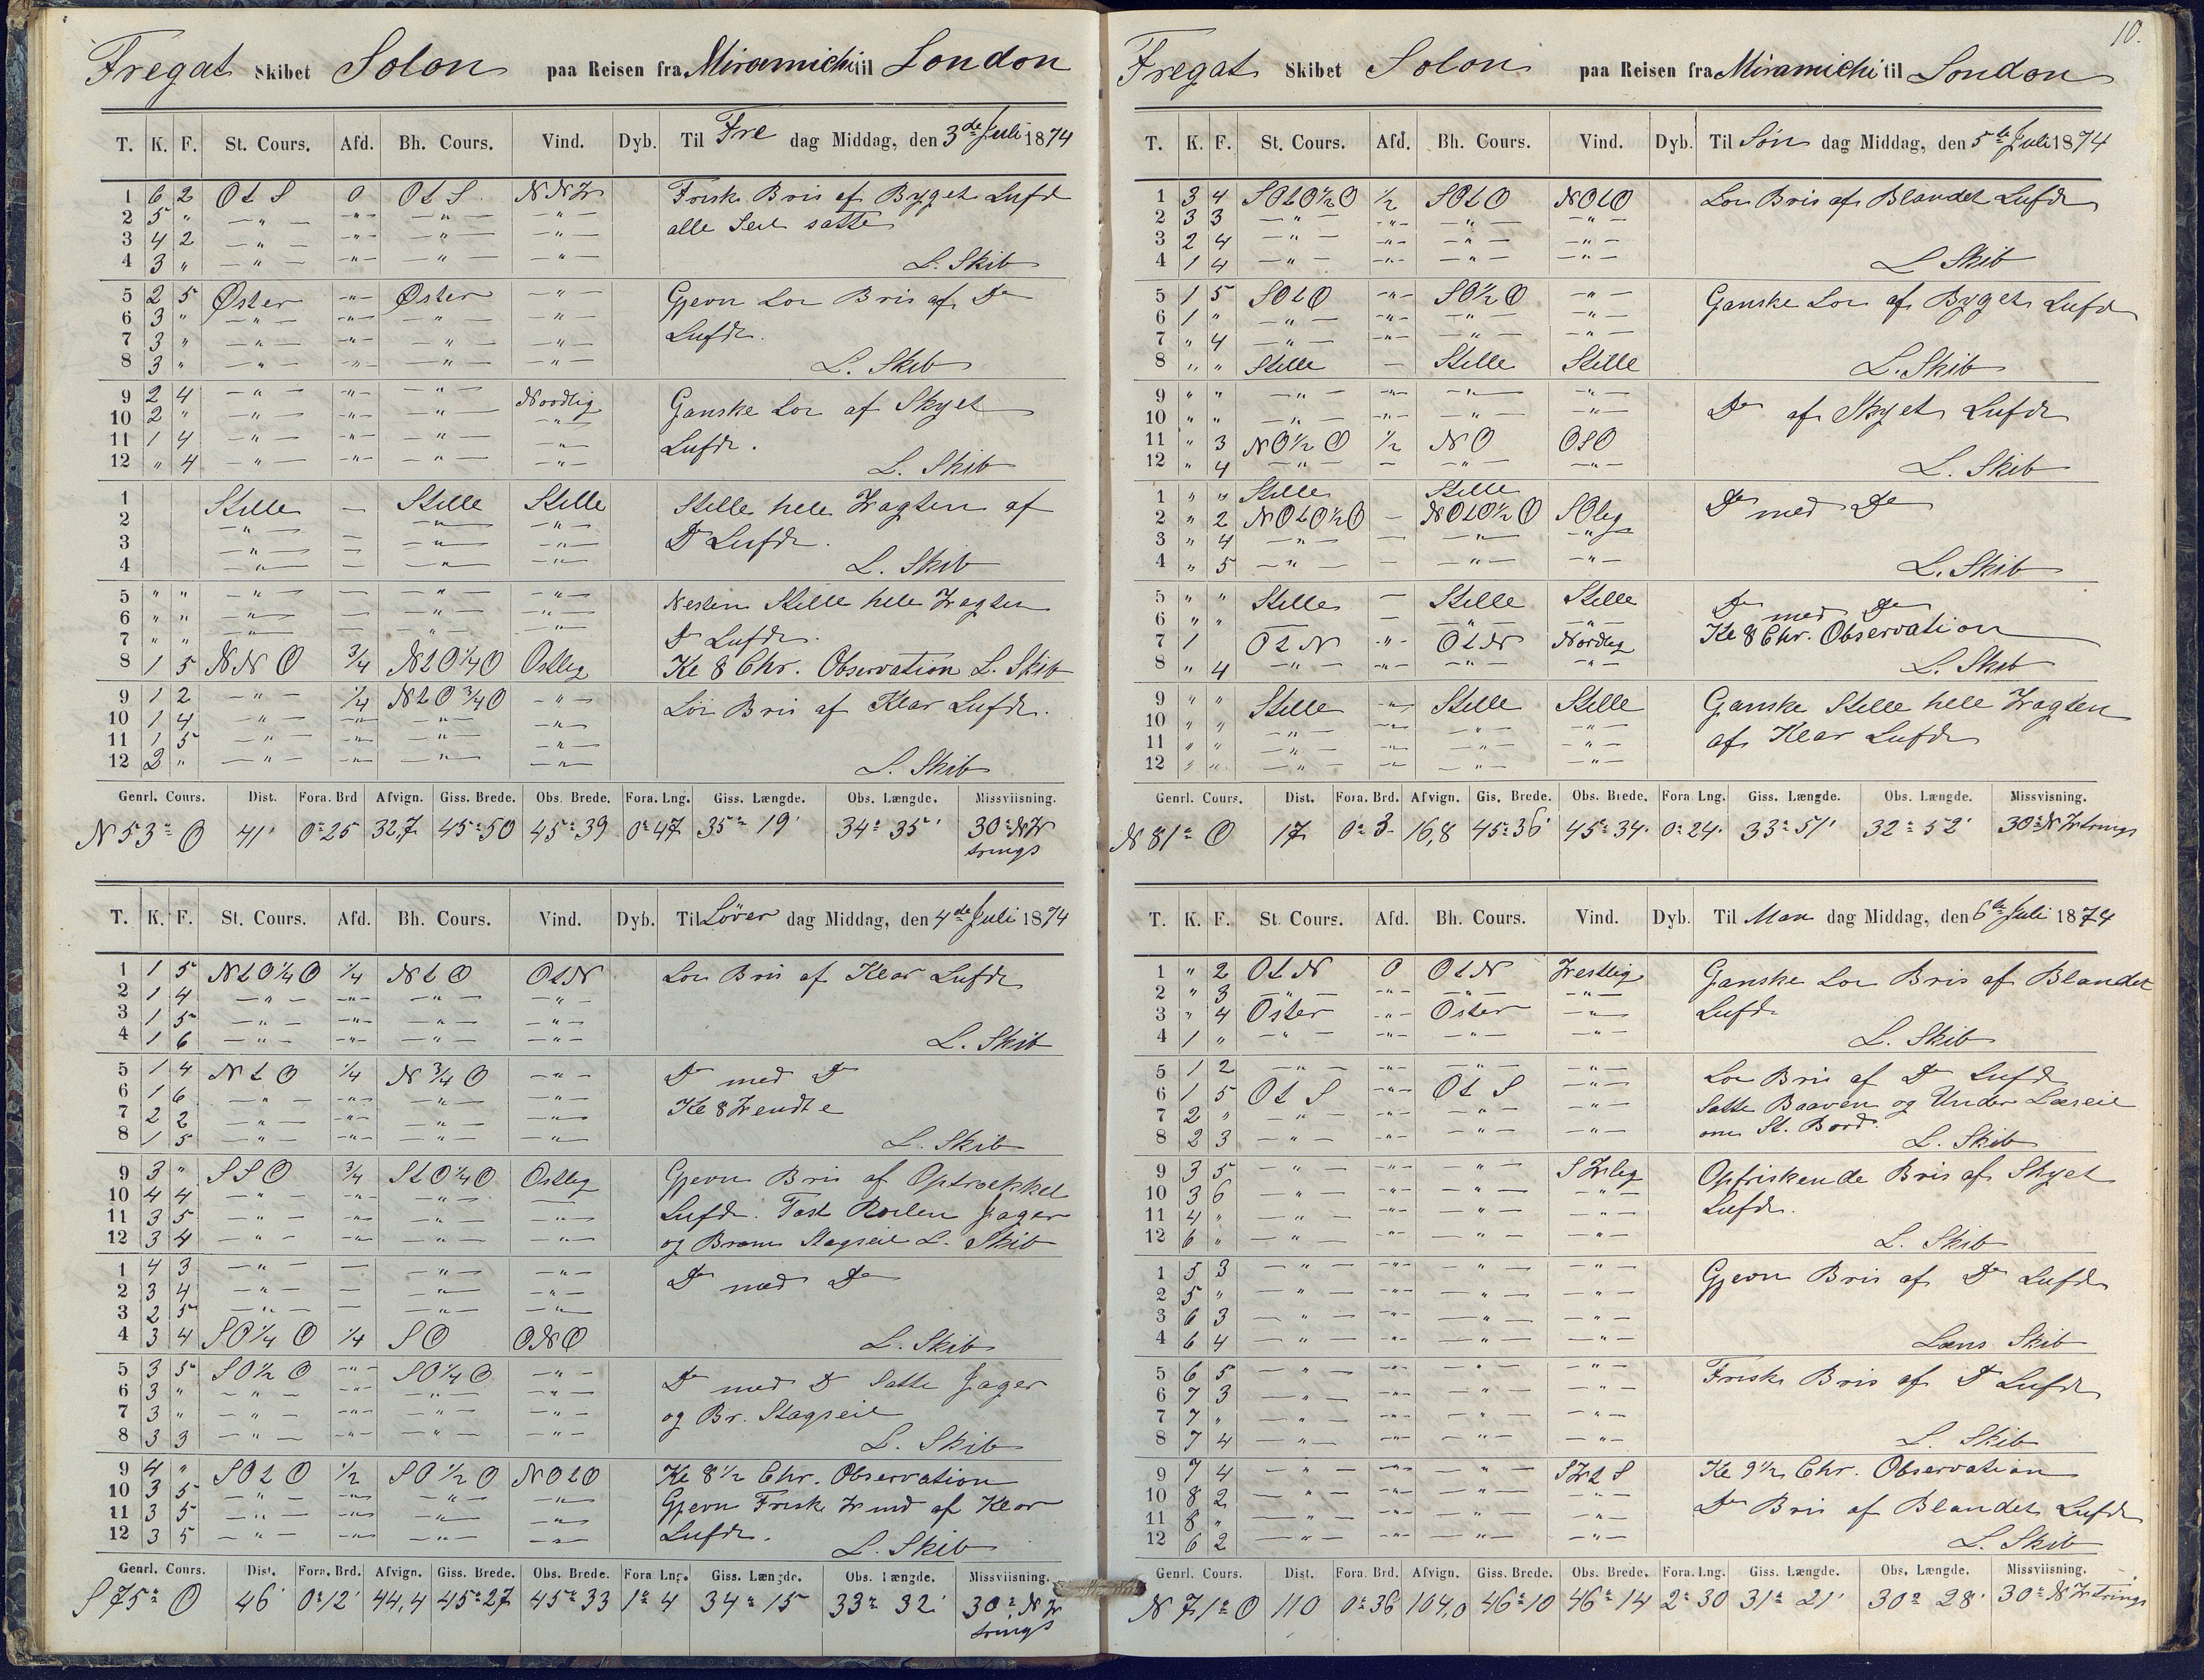 Fregat Skibet Solon paa Reisen fra Miramichi til London
T. K. F. St. Cours. Afd. Bh. Cours. Vind. Dyb. Til Fre dag Middag, den 3de Juli 1874
1 6 2 O t S 0 O t S NNW Frisk Bris af Byget Luft
2 5 " — " — — " — — " — — " — alle Seil satte
3 4 2 — " — — " — — " — — " —
4 3 " — " — — " — — " — — " — L. Skib
5 2 5 Øster — " — Øster — " — Gjevn Lor Bris af Do
6 3 " — " — — " — — " — — " — Luft.
7 3 " — " — — " — — " — — " —
8 3 " — " — — " — — " — — " — L. Skib
9 2 4 — " — — " — — " — Nordlig Ganske Lor af Skyet
10 2 " — " — — " — — " — — " — Luft.
11 1 4 — " — — " — — " — — " —
12 " 4 — " — — " — — " — — " — L. Skib
1 Stille — Stille Stille Stille hele Wagten af
2 — " — — " — — " — Do Luft.
3 — " — — — " — — " —
4 — " — — — " — — " — L. Skib
5 " " — " — — — " — — " — Nesten Stille hele Wagten
6 " " — " — — — " — — " — Do Luft.
7 " " — " — — — " — — " —
8 1 5 NNO 3/4 N t O 1/4 O Ostlig Kl 8 Chr. Observation L. Skib
9 1 2 — " — 1/4 N t O 3/4 O — " — Lor Bris af Klar Luft.
10 1 4 — " — — " — — " — — " —
11 1 5 — " — — " — — " — — " —
12 2 " — " — — " — — " — — " — L. Skib
Genrl. Cours. Dist. Fora. Brd Afvign. Giss. Brede. Obs. Brede. Fora. Lng. Giss. Længde. Obs. Længde. Missviisning.
N 53° O 41' 0° 25 32,7 45° 50 45° 39 0° 47 35° 19' 34° 35' 30° NW
trings
T. K. F. St. Cours. Afd. Bh. Cours. Vind. Dyb. Til Löver dag Middag, den 4de Juli 1874
1 1 5 N t O 1/4 O 1/4 N t O O t N Lor Bris af Klar Luft
2 1 4 — " — — " — — " — — " —
3 1 5 — " — — " — — " — — " —
4 1 6 — " — — " — — " — — " — L. Skib
5 1 4 N t O 1/4 N 3/4 O — " — Do med Do
6 1 6 — " — — " — — " — — " — Kl 8 Wendte
7 2 2 — " — — " — — " — — " —
8 1 5 — " — — " — — " — — " — L. Skib
9 3 " SSO 3/4 S t O 1/4 O Ostlig Gjevn Bris af Optrækket
10 4 4 — " — — " — — " — — Luft. Fast Roilen Jager
11 3 5 — " — — " — — " — — " — og Bram Stagseil L. Skib
12 3 4 — " — — " — — " — — " —
1 4 3 — " — — — " — — " — Do med Do
2 3 4 — " — — — " — — " —
3 2 5 — " — — — " — — " —
4 3 4 SO 1/4 O 1/4 SO ONO L. Skib
5 3 5 SO 1/2 O — " — SO 1/4 O — " — Do med Do Satte Jager
6 3 " — " — — " — — " — — " — og Br. Stagseil
7 3 " — " — — " — — " — — " —
8 3 3 — " — — " — — " — — " — L. Skib
9 4 " SO t O 1/2 SO 1/2 O NO t O Kl 8 1/2 Chr. Observation
10 3 5 — " — — " — — " — — " — Gjevn Frisk Wind af Klar
11 3 5 — " — — " — — " — — " — Luft.
12 3 5 — " — — " — — " — — " — L. Skib
Genrl. Cours. Dist. Fora. Brd. Afvign. Giss. Brede. Obs. Brede. Fora Lng. Giss. Længde. Obs. Længde. Missviisning.
S 75° O 46' 0° 12' 44,4 45° 27 45° 33 1° 4 34° 15 33° 32' 30° NW
trings
10.
Fregat Skibet Solon paa Reisen fra Miramichi til London
T. K. F. St. Cours. Afd. Bh. Cours. Vind. Dyb. Til Søn dag Middag, den 5te Juli 1874
1 3 4 SO t O 1/2 O 1/2 SO t O NO t O Lor Bris af Blandet Luft
2 3 3 — " — — " — — " — — " —
3 2 4 — " — — " — — " — — " —
4 1 4 — " — — " — — " — — " — L Skib
5 1 5 SO t O — " — SO 1/2 O — " — Ganske Lor af Byget Luft
6 1 " — " — — " — — " — — " —
7 " 4 — " — — " — — " — — " —
8 " " Stille — Stille Stille L. Skib
9 " " — " — — " — — " — Do af Skyet Luft
10 " " — " — — " — — " — — " —
11 " 3 NO 1/2 O 1/2 NO OSO
12 " 4 — " — — — " — — " — L. Skib
1 " " Stille Stille Do med Do
2 " 2 NO t O 1/2 O — NO t O 1/2 O SOlig
3 " 4 — " — — — " — — " —
4 " 5 — " — — — " — — " — L. Skib
5 " " Stille — Stille Stille Do med Do
6 " " — — " — — " — Kl 8 Chr. Observation
7 1 O t N — " — O t N Nordlig
8 " 4 — " — — " — — " — — " — L. Skib
9 " " Stille — " — Stille Stille Ganske Stille hele Wagten
10 " " — " — — " — — " — — " — af Klar Luft
11 " " — " — — " — — " — — " —
12 " " — " — — " — — " — — " —
Genrl. Cours. Dist. Fora. Brd. Afvign. Gis. Brede. Obs. Brede. Fora Lng. Giss. Længde. Obs. Længde. Missvisning.
N 81° O 17 0° 3 16,8 45° 36' 45° 34' 0° 24' 33° 51' 32° 52' 30° NWtrings
T. K. F. St. Cours. Afd. Bh. Cours. Vind. Dyb. Til Man dag Middag, den 6te Juli 1874
1 " 2 O t N 0 O t N Westlig Ganske Lor Bris af Blandet
2 " 3 — " — — " — — " — — " — Luft
3 " 4 Oster — " — Oster — " —
4 1 " — " — — " — — " — — " — L. Skib
5 1 2 — " — — " — — " — — " — Lor Bris af Do Luft
6 1 5 O t S — " — O t S — " — Satte Baaven og Under Læseil
7 2 " — " — — " — — " — — " — om St. Bord.
8 2 3 — " — — " — — " — — " — L. Skib
9 3 5 — " — — " — — " — SWlig Opfriskende Bris af Skyet
10 3 6 — " — — " — — " — — " — Luft.
11 4 " — " — — " — — " — — " —
12 6 " — " — — " — — " — — " — L. Skib
1 5 3 — " — — " — — " — — " — Gjevn Bris af Do Luft
2 5 " — " — — " — — " — — " —
3 6 3 — " — — " — — " — — " —
4 6 4 — " — — " — — " — — " — Læns Skib
5 6 5 — " — — " — — " — — " — Frisk Bris af Do Luft
6 7 3 — " — — " — — " — — " —
7 7 " — " — — " — — " — — " —
8 7 4 — " — — " — — " — — " — L. Skib
9 7 4 — " — — " — — " — SW t S Kl 9 1/2 Chr. Observation
10 8 2 — " — — " — — " — — " — Do Bris af Blandet Luft
11 8 " — " — — " — — " — — " —
12 6 2 — " — — " — — " — — " — L. Skib
Genrl. Cours. Dist. Fora Brd. Afvign. Giss. Brede. Obs. Brede. Fora. Lng. Giss. Længde. Obs. Længde. Missviisning.
N 71° O 110 0° 36 104,0 46° 10 46° 14 2° 30 31° 21' 30° 28' 30° NWtrings